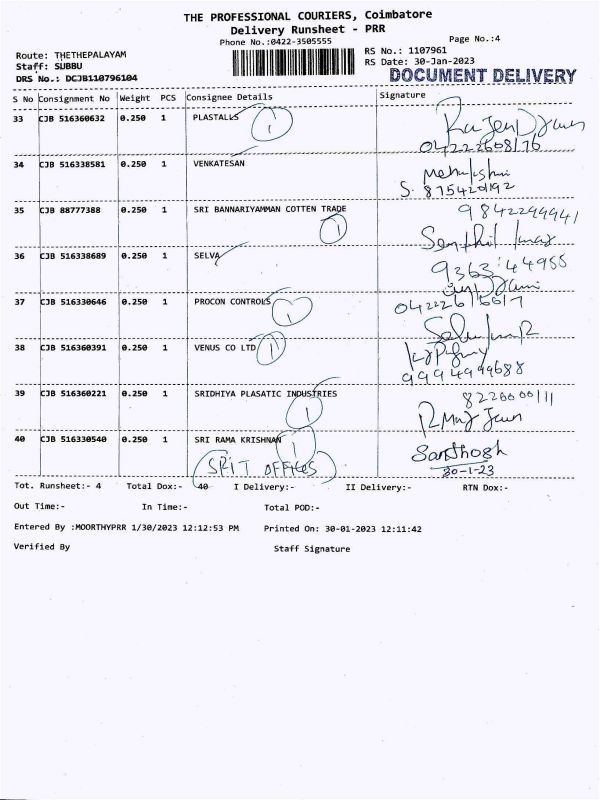 THE PROFESSIONAL COURIERS, Coimbatore
Delivery Runsheet - PRR
Phone No.:0422-3505555
Page No.:4
Route: THETHEPALAYAM
RS No.: 1107961
Staff: SUBBU
RS Date: 30-Jan-2023
DRS No.: DCJB110796104
DOCUMENT DELIVERY
S No Consignment No Weight PCS Consignee Details Signature
33 CJB 516360632 0.250 1 PLASTALLS 1
34 CJB 516338581 0.250 1 VENKATESAN
S. 875420192
35 CJB 88777388 0.250 1 SRI BANNARIYAMMAN COTTEN TRADE 1
9842299941
36 CJB 516338689 0.250 1 SELVA
9363 44955
37 CJB 516330646 0.250 1 PROCON CONTROLS 1
38 CJB 516360391 0.250 1 VENUS CO LTD 1
9994999688
39 CJB 516360221 0.250 1 SRIDHIYA PLASATIC INDUSTRIES 1
40 CJB 516330540 0.250 1 SRI RAMA KRISHNAN 1
Santhosh
30-1-23
Tot. Runsheet:- 4 Total Dox:- 40 I Delivery:- II Delivery:- RTN Dox:-
Out Time:- In Time:- Total POD:-
Entered By :MOORTHYPRR 1/30/2023 12:12:53 PM Printed On: 30-01-2023 12:11:42
Verified By Staff Signature